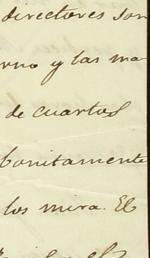 directores son
rno y las ma
de cuartos
bonitamente
los mira. El